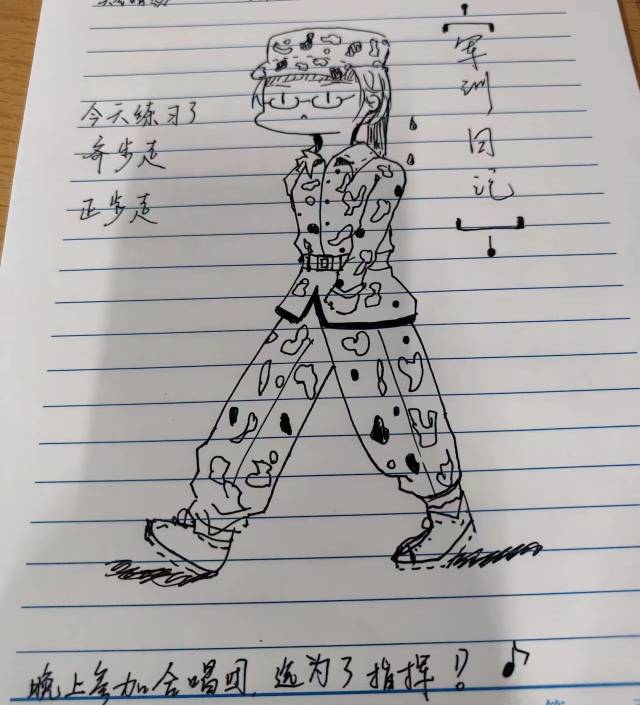 军训日记
今天练习了
齐步走
正步走
晚上参加合唱团，选为了指挥！？